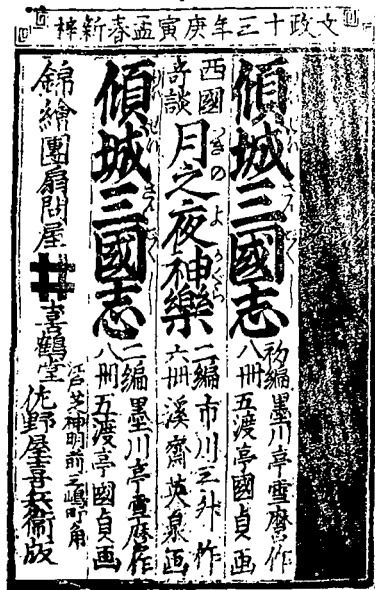 文政十三年庚寅孟春新梓
傾城三國志 初編 八冊 墨川亭雪麿作 五渡亭國貞画
西國奇談 月之夜神樂 二編 六冊 市川三升作 溪齋英泉画
傾城三國志 二編 八冊 墨川亭雪麿作 五渡亭國貞画
錦繪團扇問屋 喜鶴堂 江戸芝神明前三嶋町角 佐野屋喜兵衞版